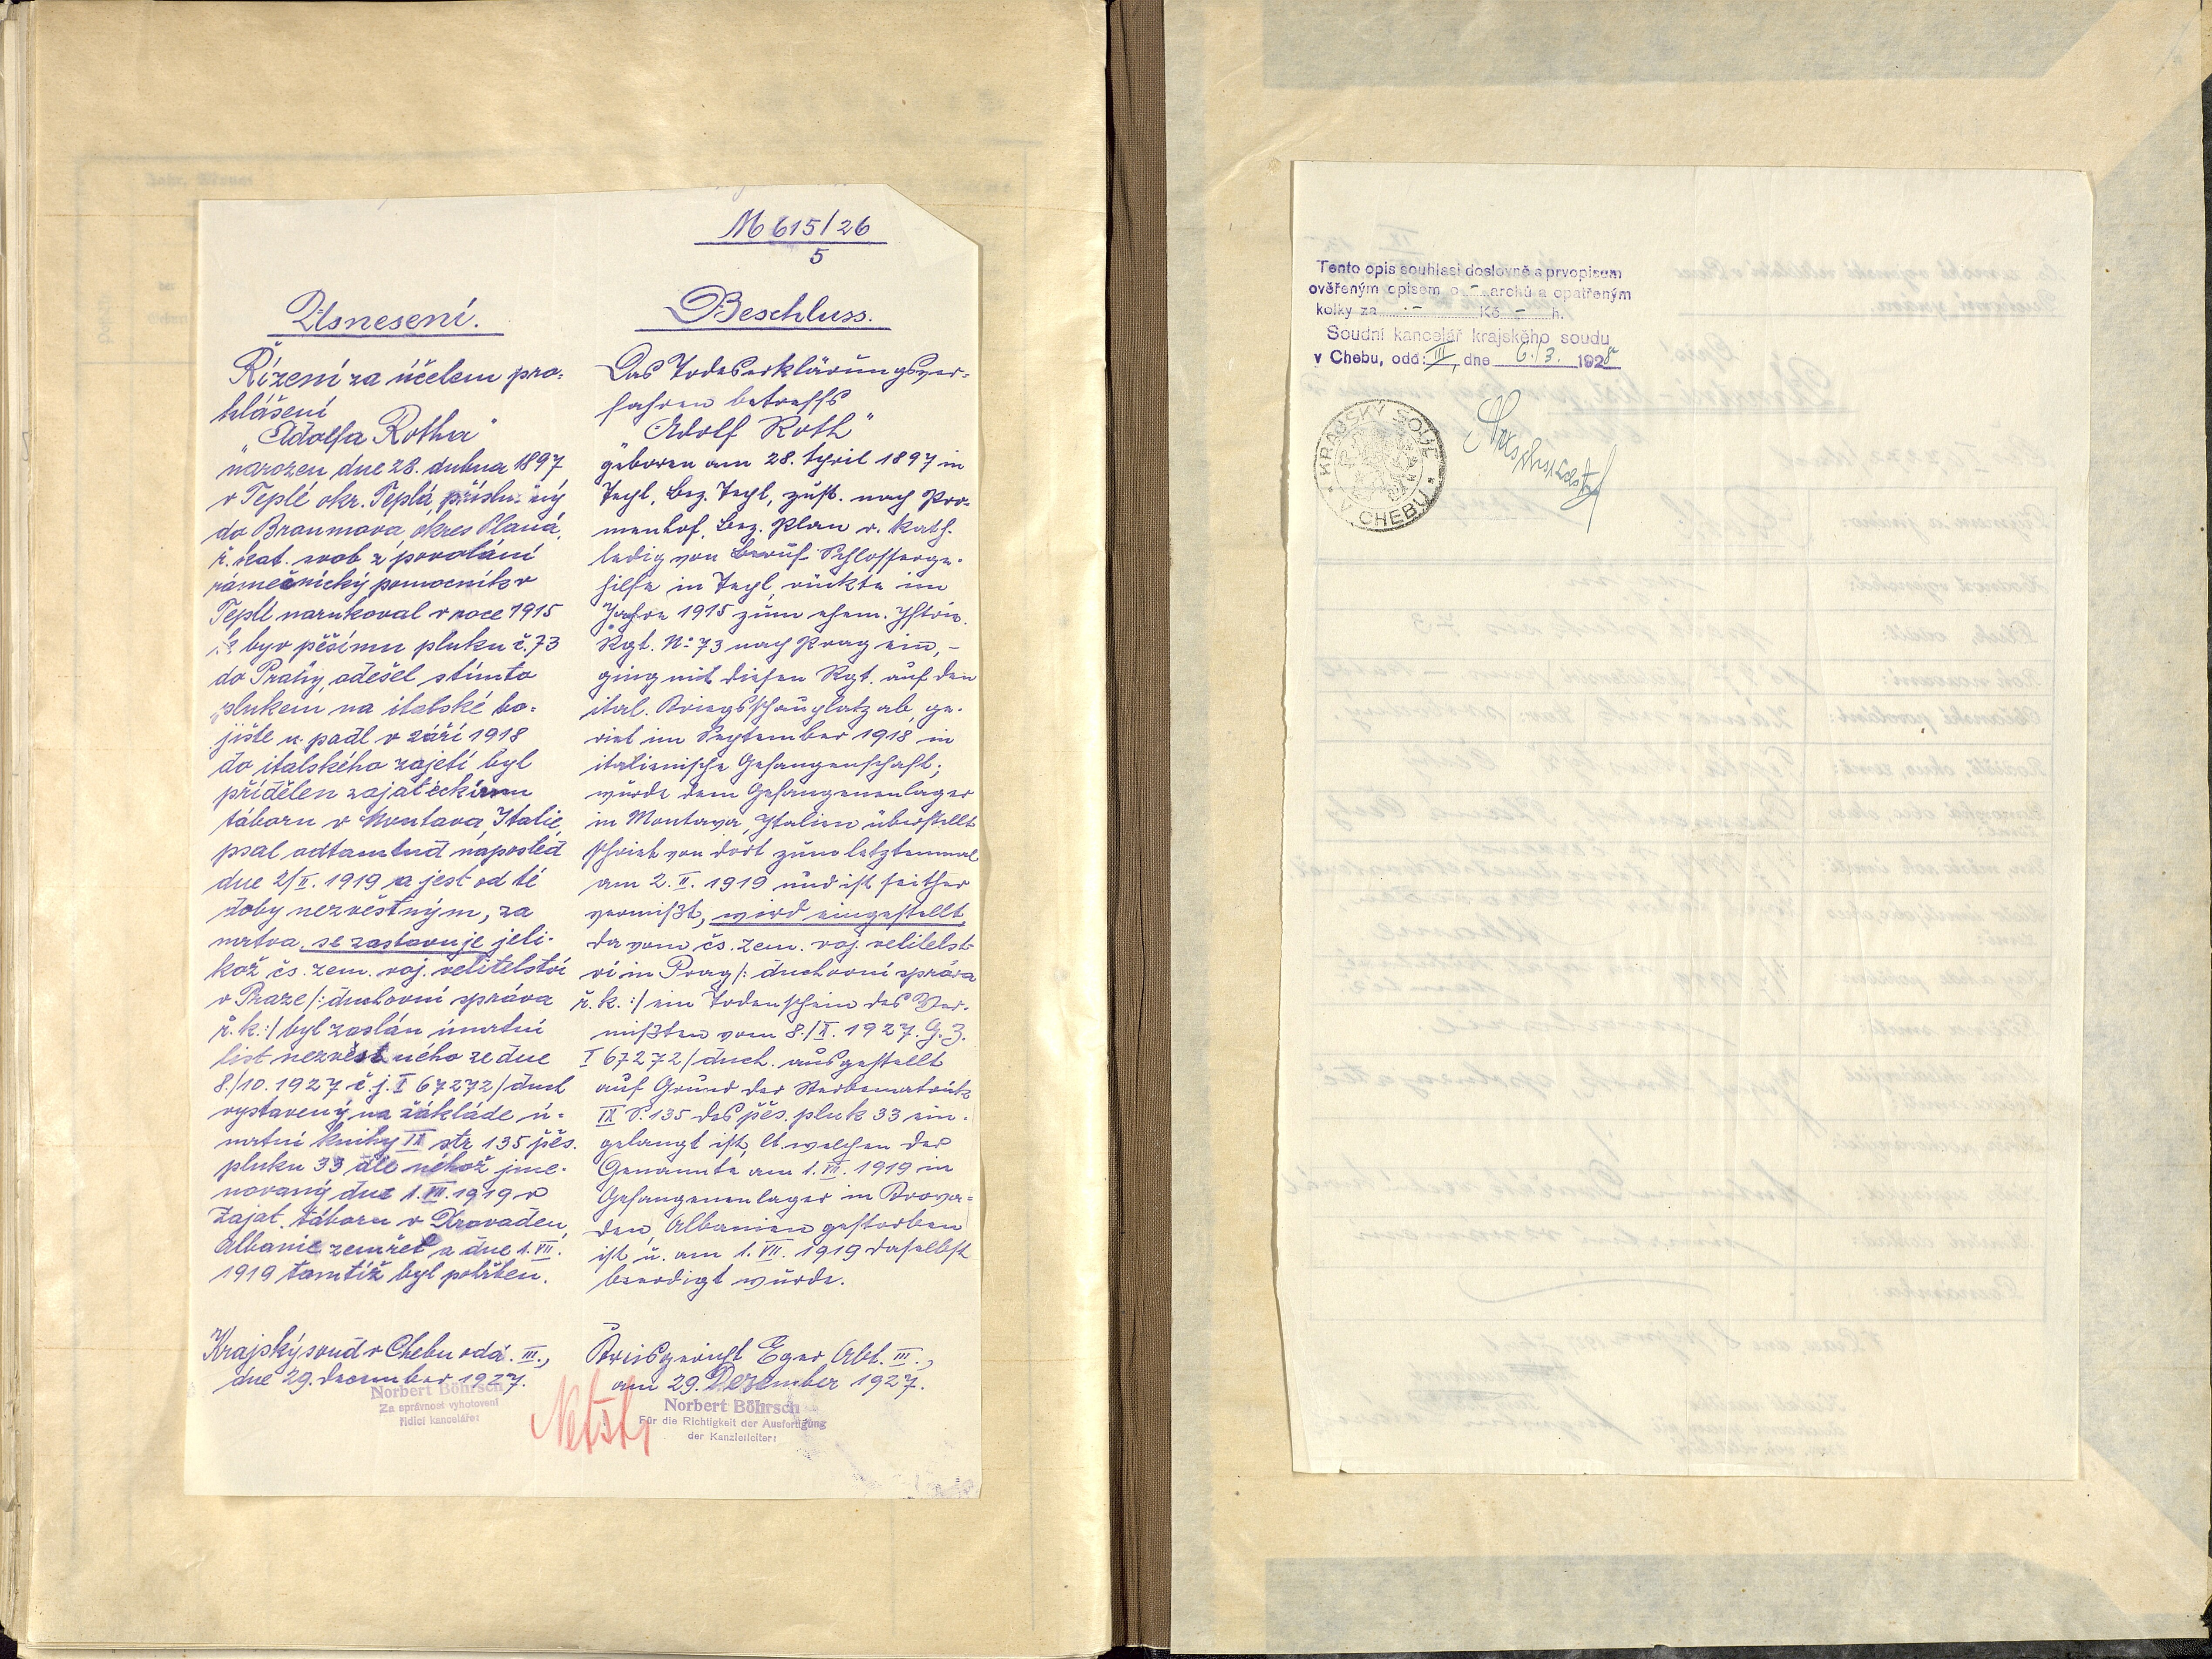 M 615/26
5
Usnesení.
Řízení za účelem pro-
hlášení
"Adolfa Rotha"
narozen dne 28. dubna 1897
v Teplé okr. Teplá, příslušný
do Braumova, okres Planá,
ř. kat. svob z povolání
zámečnický pomocník v
Teplé narukoval v roce 1915
k býv pěšímu pluku č. 73
do Prahy, odešel s tímto
plukem na italské bo-
jiště u. padl v září 1918
do italského zajetí byl
přidělen zajateckému
táboru v Montava, Italie,
psal odtamtud naposled
dne 2/II. 1919 a jest od té
doby nezvěstným, za
mrtva, se zastavuje jeli-
kož čs. zem. voj. velitelství
v Praze /: duchovní správa
ř. k. :/ byl zaslán úmrtní
list nezvěstného ze dne
8./10. 1927 č. j. I 67272/duch
vystavený na základe ú-
mrtní knihy IX str 135 pěs.
pluku 33 dle něhož jme-
novaný dne 1. VII. 1919 v
zajat. táboru v Dravaden,
Albanie zemřel a dne 1. VII.
1919 tamtéž byl pohřben.
Krajský soud v Chebu odd. III.,
dne 29. december 1927.
Norbert Böhrsch
Za správnost vyhotovení
řídící kancelářet
Beschluss.
Das Todeserklärungsver-
fahren betreffs
"Adolf Roth"
geboren am 28. April 1897 in
Tepl, Bez. Tepl, zust. nach Pro-
menhof, Bez. Plan r. kath.
ledig von Beruf Schlosserge-
hilfe in Tepl, rückte im
Jahre 1915 zum ehem. Iftrie.
Rgt. No 73 nach Prag ein, -
ging mit diesen Rgt. auf den
ital. Kriegsschauplatz ab, ge-
riet im September 1918 in
italienische Gefangenschaft;
wurde dem Gefangenenlager
in Montava, Italien überstellt
schrieb von dort zum letztenmal
am 2. II. 1919 und ist seither
vermißt, wird eingestellt,
da vom čs. zem. voj. velitelst-
ví in Prag /: duchovní správa
ř. k. :/ ein Todenschein des Ver-
mißten vom 8./X. 1927. G. Z.
I 67272/duch. ausgestellt
auf Grund der Sterbematrik
IX S. 135 des pěs. pluk 33 ein-
gelangt ist, lt. welchen der
Genannte am 1. VII. 1919 in
Gefangenenlager in Drova-
den, Albanien gestorben
ist u. am 1. VII. 1919 daselbst
beerdigt wurde.
Kreisgericht Eger Abt. III.,
am 29. Dezember 1927.
Norbert Böhrsch
Für die Richtigkeit der Ausfertigung
der Kanzleileiter:
Tento opis souhlasí doslovně s prvopisem
ověřeným opisem o - archů a opatřeným
kolky za - Kč - h.
Soudní kancelář krajského soudu
v Chebu, odd: III, dne 6./3. 1928
KRAJSKÝ SOUD V CHEBU